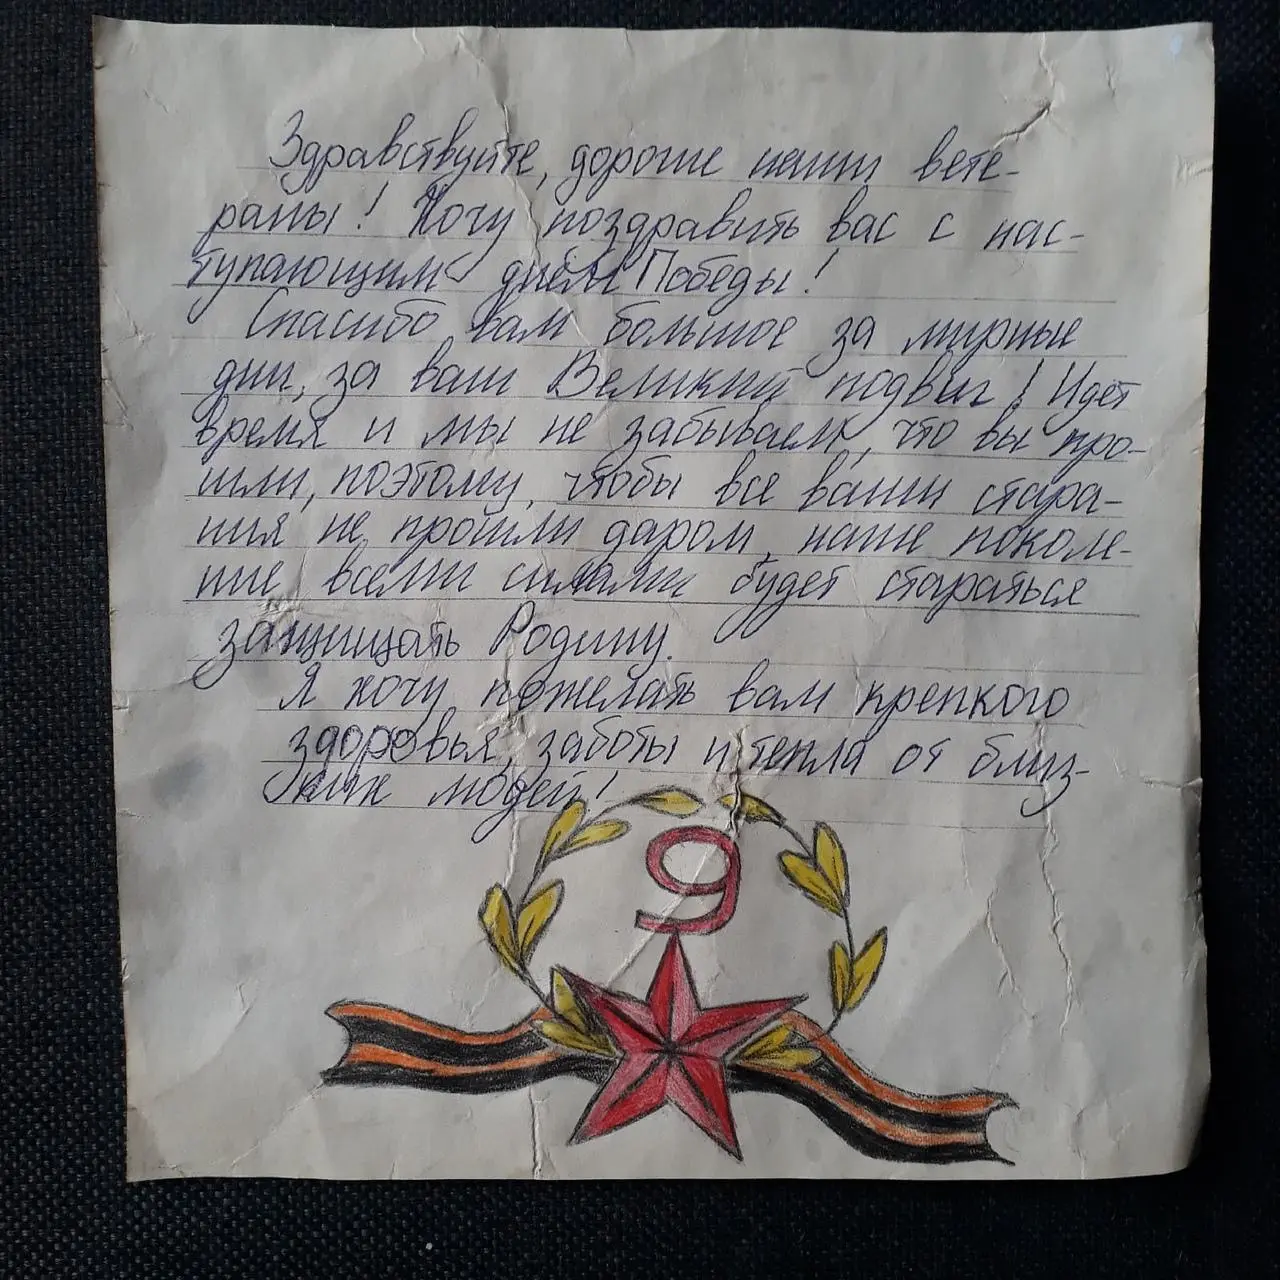 Здравствуйте, дорогие наши вете-
раны! Хочу поздравить вас с нас-
тупающим днём Победы!
Спасибо вам большое за мирные
дни, за ваш Великий подвиг! Идёт
время и мы не забываем, что вы про-
шли, поэтому, чтобы все ваши стара-
ния не прошли даром, наше поколе-
ние всеми силами будет стараться
защищать Родину.
Я хочу пожелать вам крепкого
здоровья, заботы и тепла от близ-
ких людей!
9